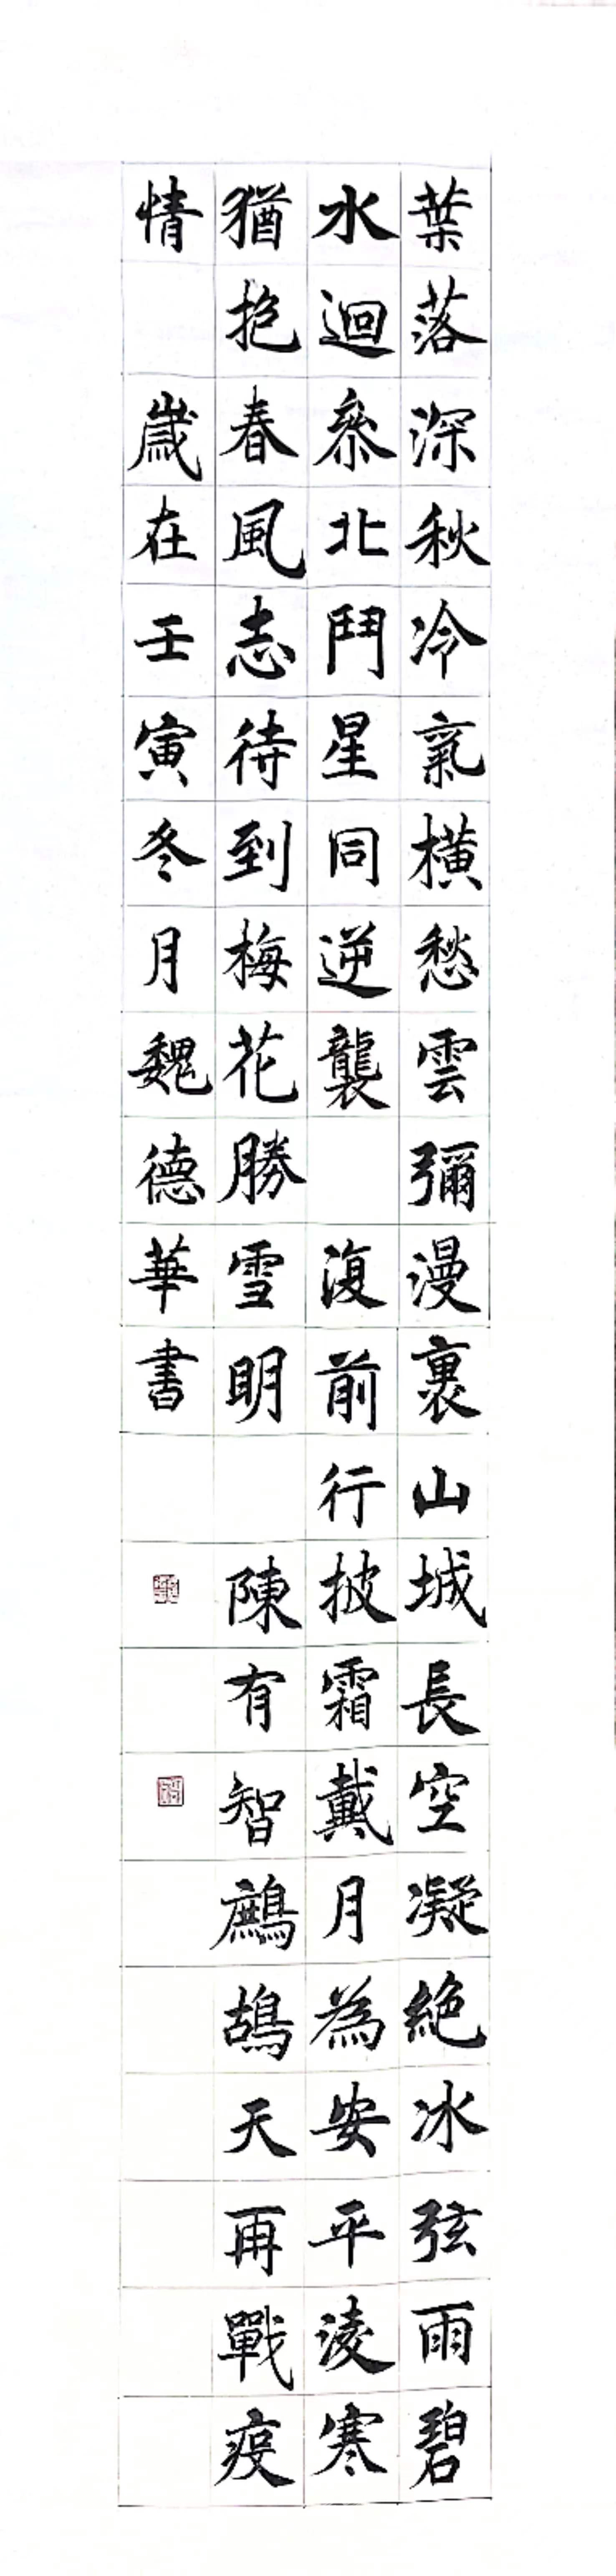 葉落深秋冷氣橫愁雲彌漫裹山城長空凝絶冰弦雨碧
水迴參北鬥星同逆襲 復前行披霜戴月為安平淩寒
猶抱春風志待到梅花勝雪明 陳有智鷓鴣天再戰疫
情 歲在壬寅冬月魏德華書